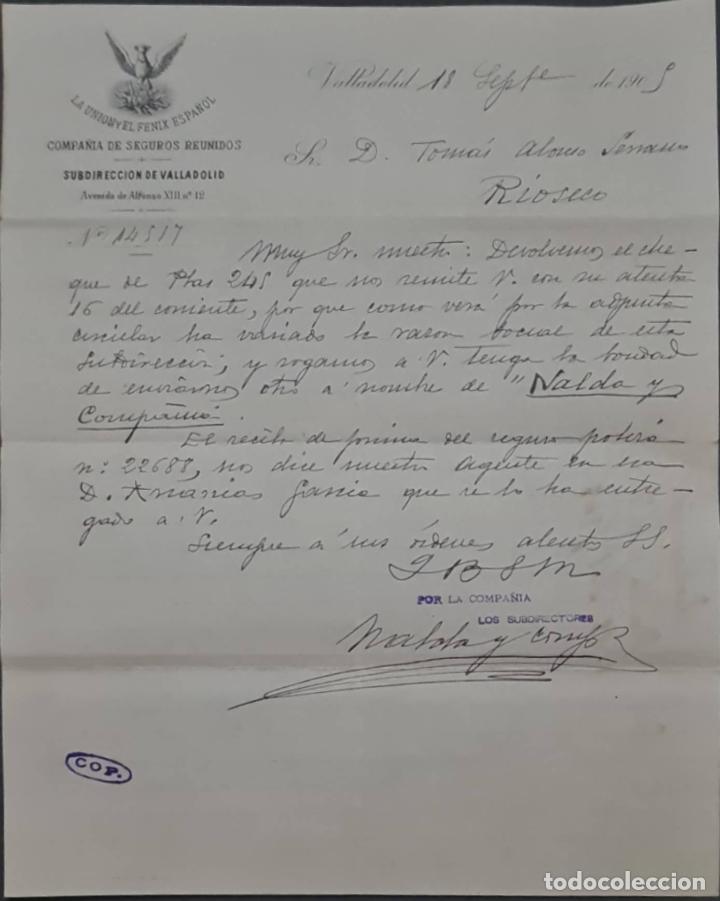 LA UNION Y EL FENIX ESPAÑOL
COMPAÑIA DE SEGUROS REUNIDOS
SUBDIRECCION DE VALLADOLID
Avenida de Alfonso XIII, nº 12
Nº 14517
Valladolid 18 Septe de 1905
Sr. D. Tomás Alonso Serrano
Rioseco
Muy Sr. nuestro: Devolvemos el che-
que de Ptas 245 que nos remite V. con su atenta
16 del corriente, por que como verá por la adjunta
circular ha variado la razon social de esta
Subdirección; y rogamos a V. tenga la bondad
de enviarnos otro a nombre de "Nalda y
Compañia.
El recibo de prima del seguro poliza
n: 22688, nos dice nuestro Agente en esa
D. Ananias Garcia que se lo ha entre-
gado a V.
Siempre a sus órdenes atento SS.
Q B S M
POR LA COMPAÑIA
LOS SUBDIRECTORES
Nalda y Comp
COP.
todocoleccion.net